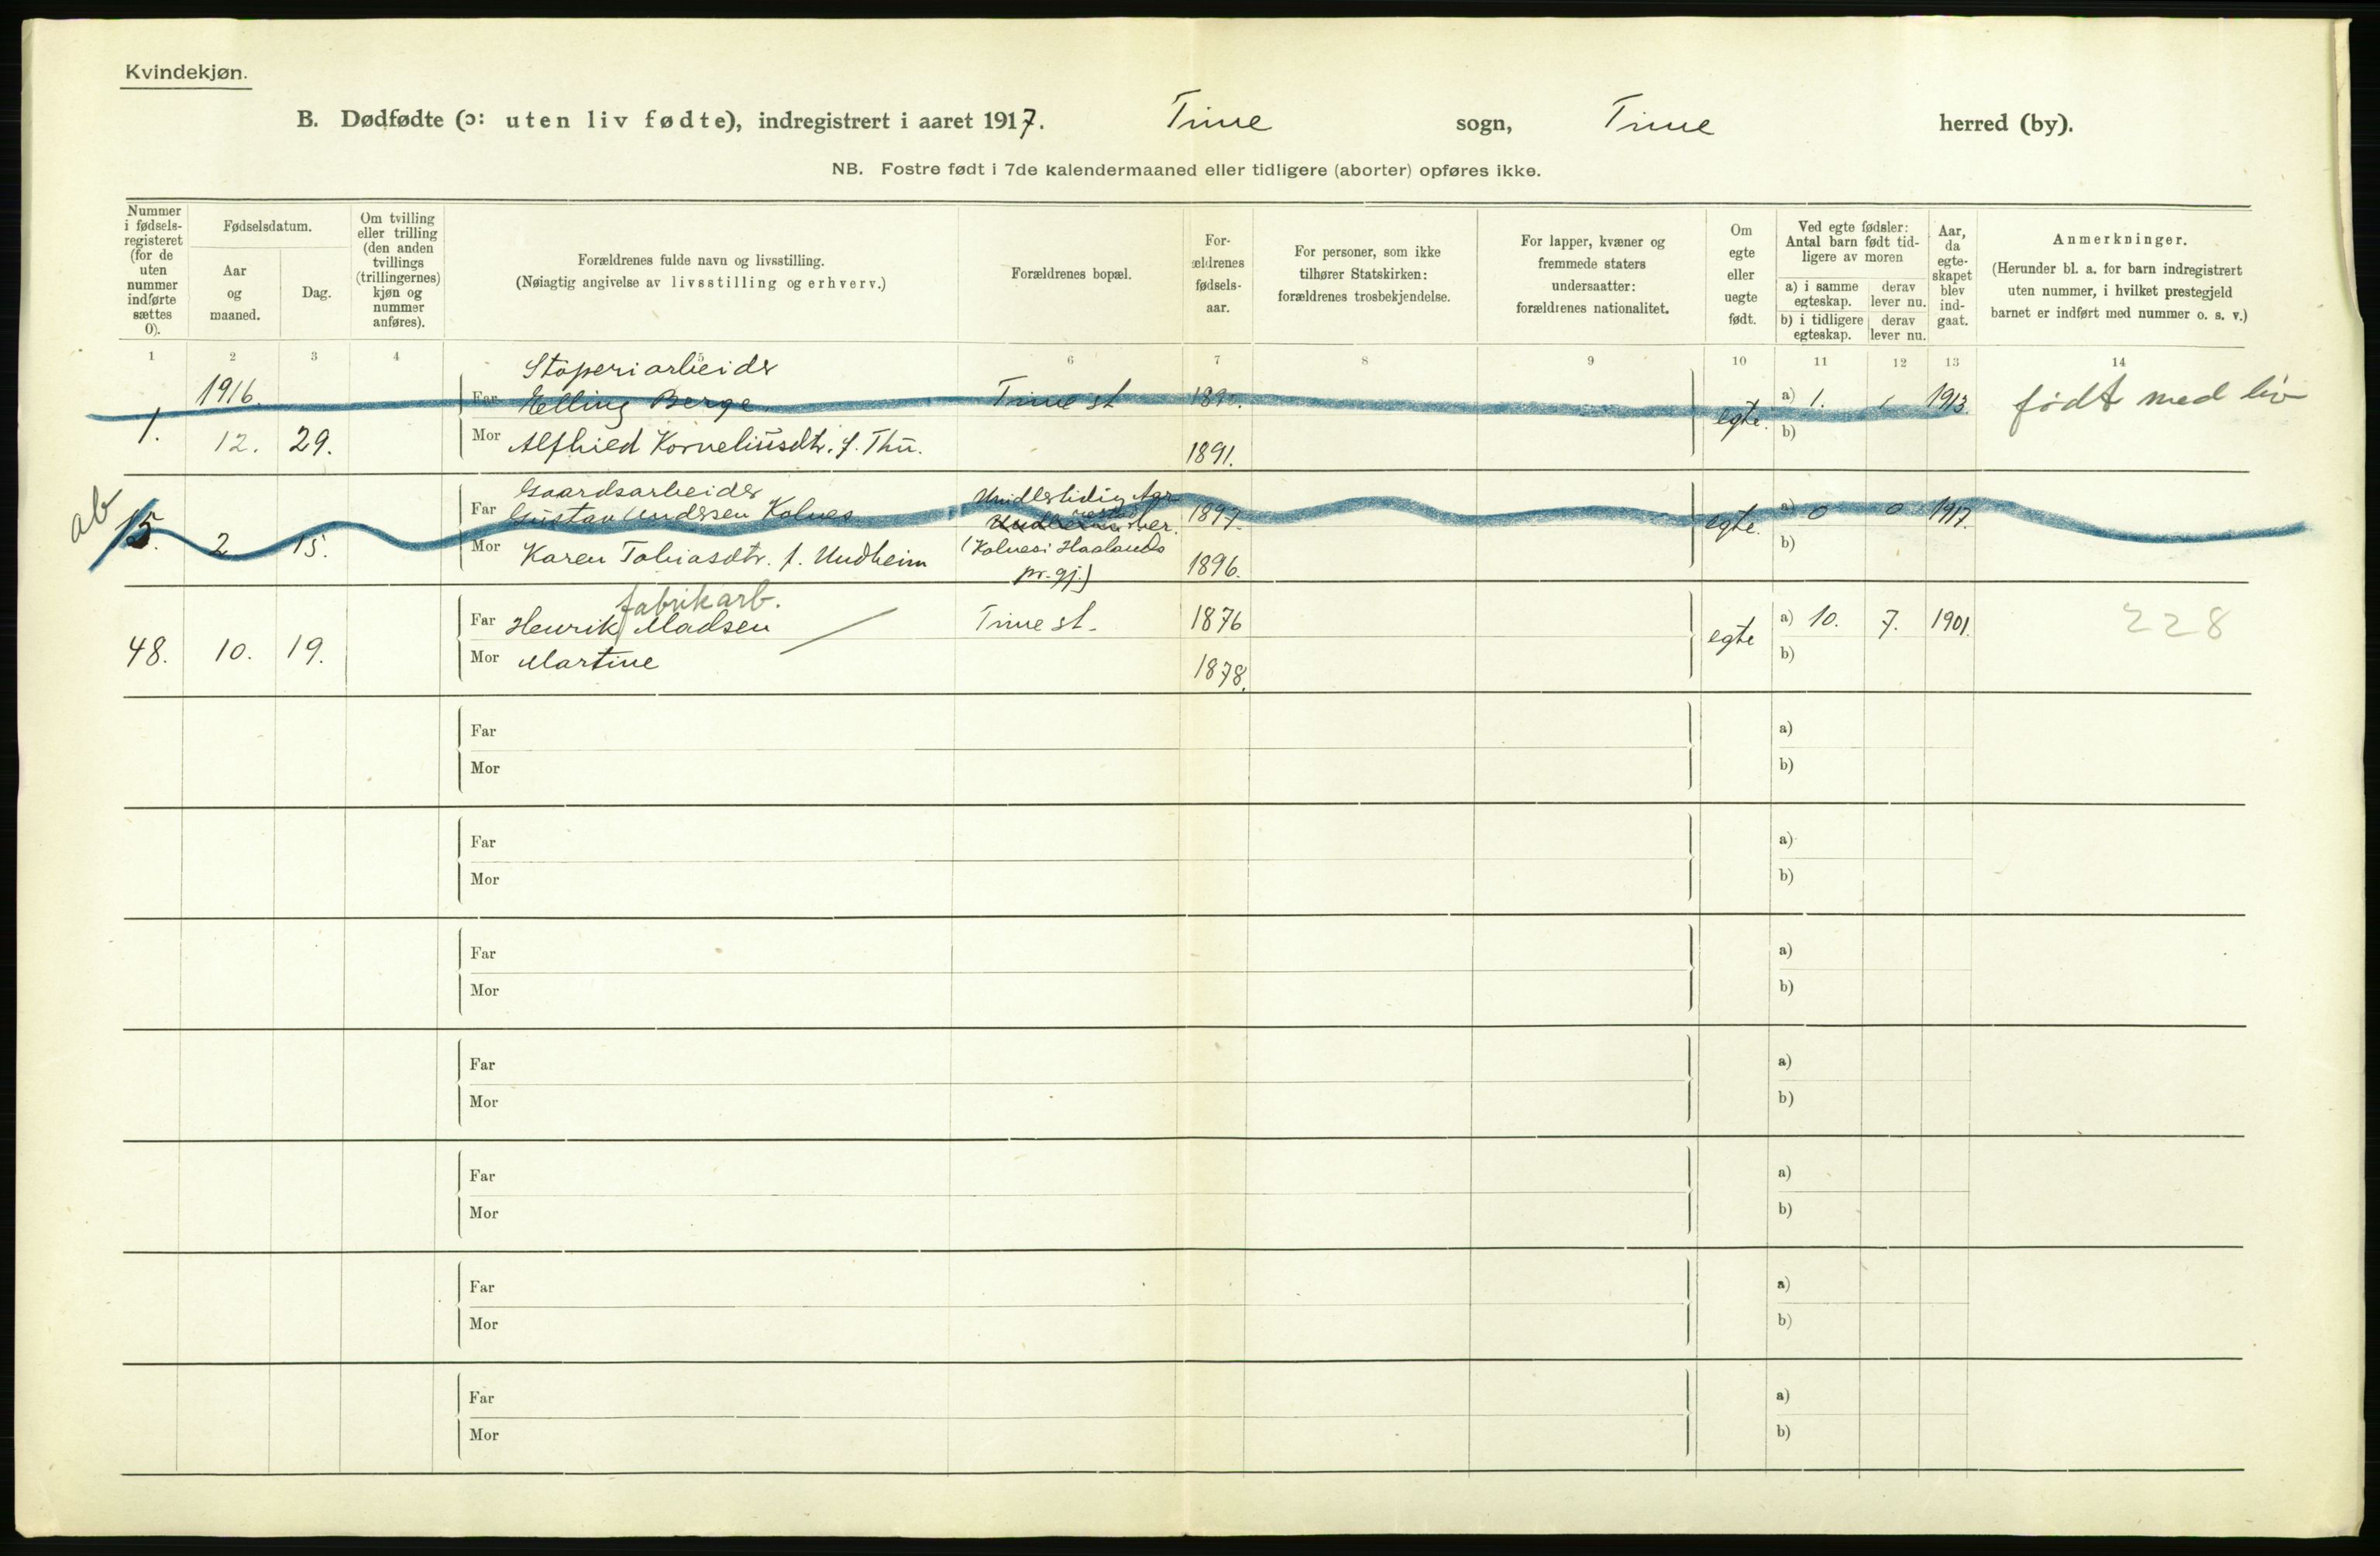 Kvindekjøn.
B. Dødfødte (ɔ: uten liv fødte), indregistrert i aaret 1917. Time sogn, Time herred (by).
NB. Fostre født i 7de kalendermaaned eller tidligere (aborter) opføres ikke.
Nummer i fødsels-registeret (for de uten nummer indførte sættes 0).
Fødselsdatum.
Aar og maaned.
Dag.
Om tvilling eller trilling (den anden tvillings (trillingernes) kjøn og nummer anføres).
Forældrenes fulde navn og livsstilling.
(Nøiagtig angivelse av livsstilling og erhverv.)
Forældrenes bopæl.
For-ældrenes fødsels-aar.
For personer, som ikke tilhører Statskirken: forældrenes trosbekjendelse.
For lapper, kvæner og fremmede staters undersaatter: forældrenes nationalitet.
Om egte eller uegte født.
Ved egte fødsler: Antal barn født tid-ligere av moren
a) i samme egteskap.
derav lever nu.
b) i tidligere egteskap.
derav lever nu.
Aar, da egte-skapet blev ind-gaat.
Anmerkninger.
(Herunder bl. a. for barn indregistrert uten nummer, i hvilket prestegjeld barnet er indført med nummer o. s. v.)
1 2 3 4 5 6 7 8 9 10 11 12 13 14
Støperiarbeider
1916. Far Elling Berge Time st a) 1. 1 1913. født med liv
1. 12. 29. Mor Alfhied Korneliusdtr. f. Thu. 1891. egte. b)
ab
Gaardsarbeider
15. 2 15. Far Gustav Andersen Kolnes Midlertidig 1897. egte. a) 0 0 1917.
Mor Karen Tobiasdtr. f. Undheim (Kolnes i Haalands 1896. b)
pr.gj.)
fabrikarb.
48. 10. 19. Far Henrik Madsen Time st. 1876 egte a) 10. 7. 1901. 228
Mor Martine 1878. b)
Far a)
Mor b)
Far a)
Mor b)
Far a)
Mor b)
Far a)
Mor b)
Far a)
Mor b)
Far a)
Mor b)
Far a)
Mor b)